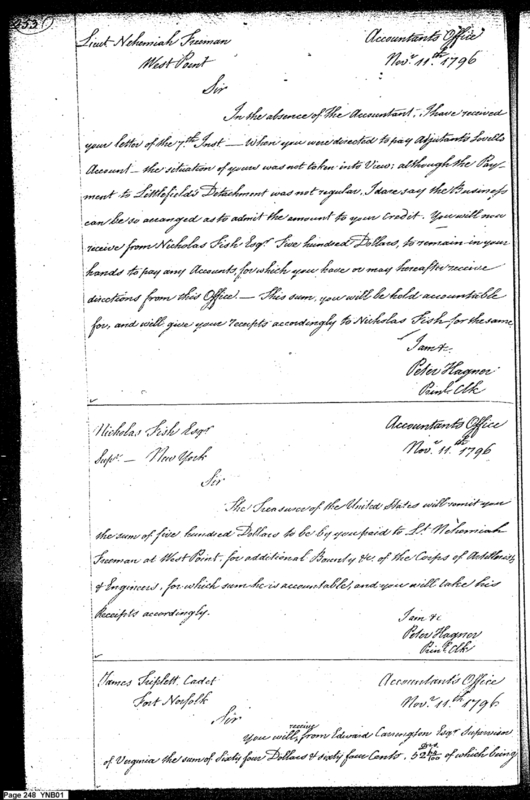 253
Lieut. Nehemiah Freeman
Accountants Office
West Point
Novr. 11th 1796
Sir
In the absence of the Accountant, I have received
your letter of the 7th Inst — When you were directed to pay Adjutant Lovells
Account — the situation of yours was not taken into View; although the Pay-
ment to Littlefield's Detachment was not regular, I dare say the Business
can be so arranged as to admit the amount to your Credit — You will now
receive from Nicholas Fish Esqr. Five hundred Dollars, to remain in your
hands to pay any Accounts, for which you have or may hereafter receive
directions from this Office — This sum, you will be held accountable
for, and will give your receipts accordingly to Nicholas Fish for the same
I am &c.
Peter Hagner
Prinl. Clk
Nicholas Fish Esqr.
Accountants Office
Supr. — New York
Novr. 11th 1796
Sir
The Treasurer of the United States will remit you
the sum of five hundred Dollars to be by you paid to Lt. Nehemiah
Freeman at West Point, for additional Bounty &c. of the Corps of Artillerists
& Engineers, for which sum he is accountable, and you will take his
Receipts accordingly.
I am &c
Peter Hagner
Prinl. Clk
James Triplett, Cadet
Accountants Office
Fort Norfolk
Novr. 11th 1796
Sir
You will receive from Edward Carrington Esqr. Supervisor
of Virginia the sum of Sixty four Dollars & sixty four Cents, 52 of which being
Page 248 YNB01